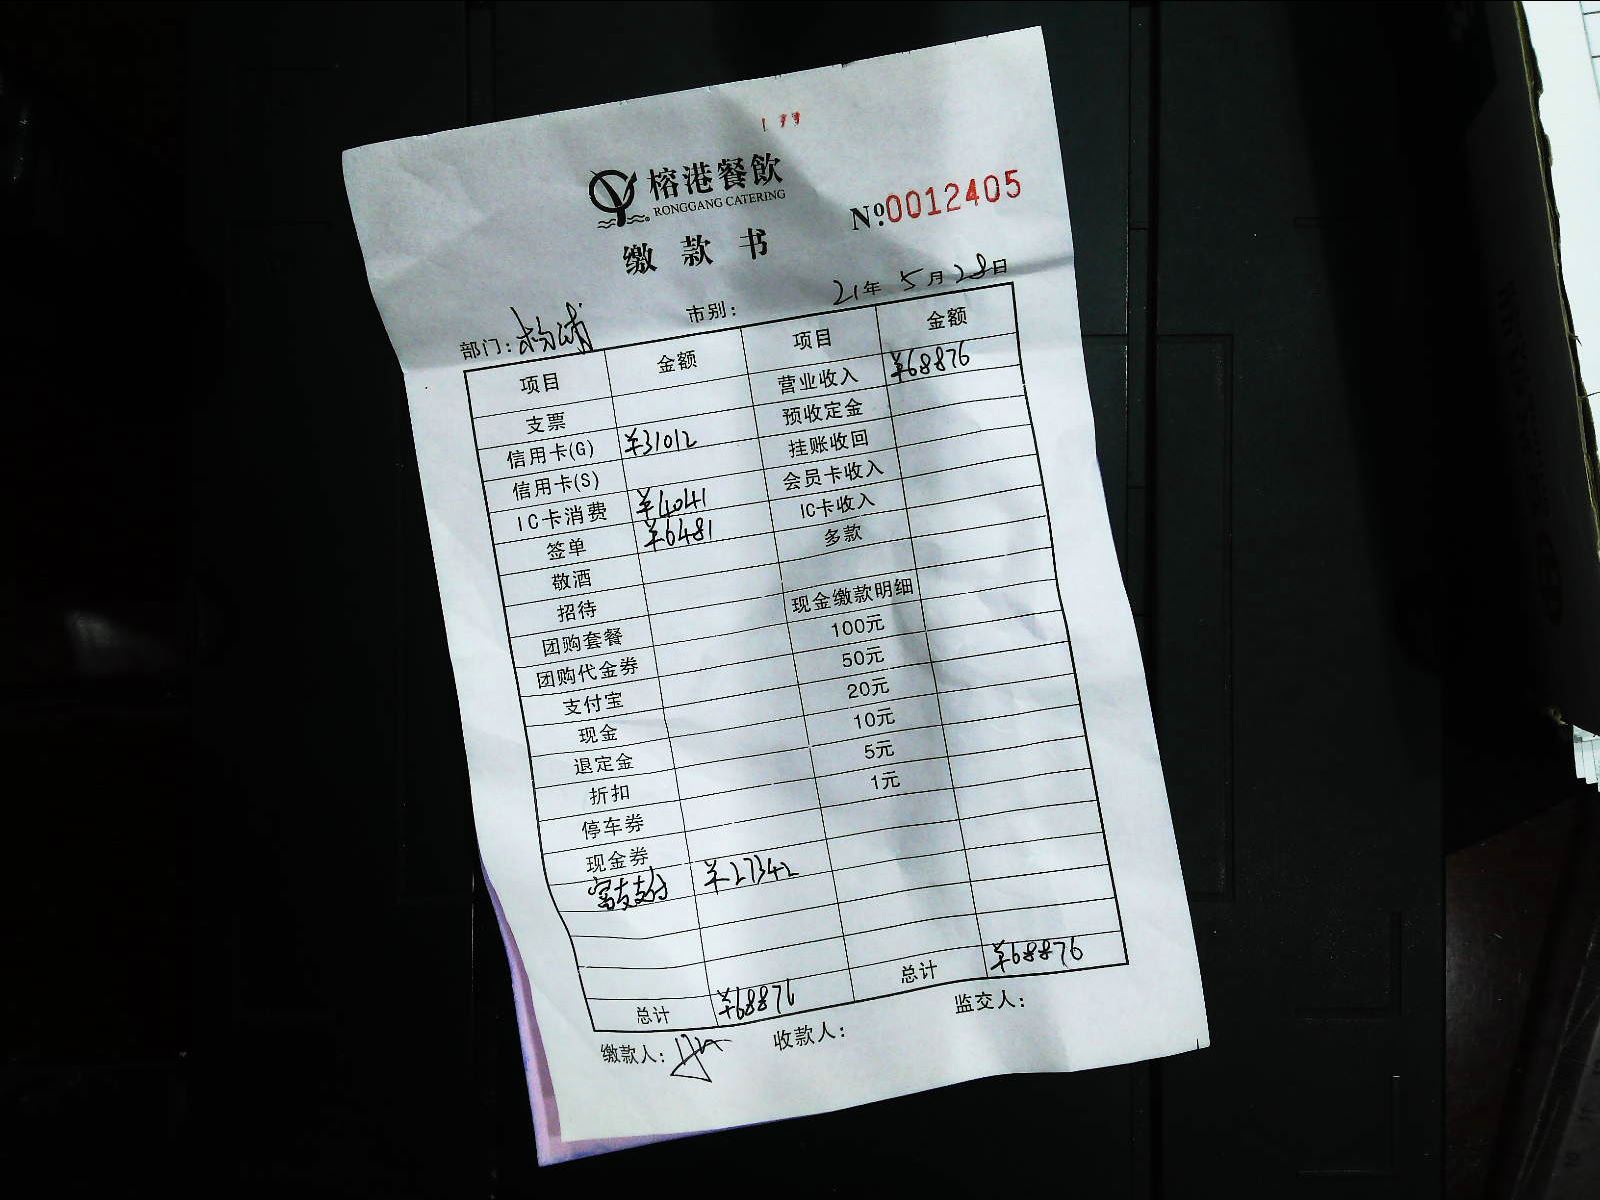 榕港餐飲
RONGGANG CATERING
№0012405
缴款书
部门:杨浦 市别: 21年5月28日
项目 金额 项目 金额
支票 营业收入 ¥68876
信用卡(G) ¥31012 预收定金
信用卡(S) 挂账收回
IC卡消费 ¥4041 会员卡收入
签单 ¥6481 IC卡收入
敬酒 多款
招待
团购套餐 现金缴款明细
团购代金券 100元
支付宝 50元
现金 20元
退定金 10元
折扣 5元
停车券 1元
现金券
富友支付 ¥27342
总计 ¥68876 总计 ¥68876
缴款人: 收款人: 监交人: